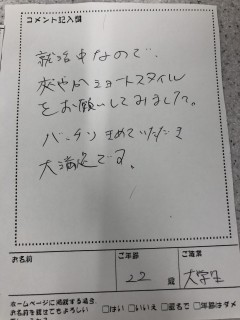 コメント記入欄
就活中なので、
爽やかショートスタイル
をお願いしてみました。
バッチリきめていただき
大満足です。
お名前
ご年齢
ご職業
22 歳
大学生
ホームページに掲載する場合
お名前を載せてもよろしい
□はい □いいえ □匿名で □年齢はダメ